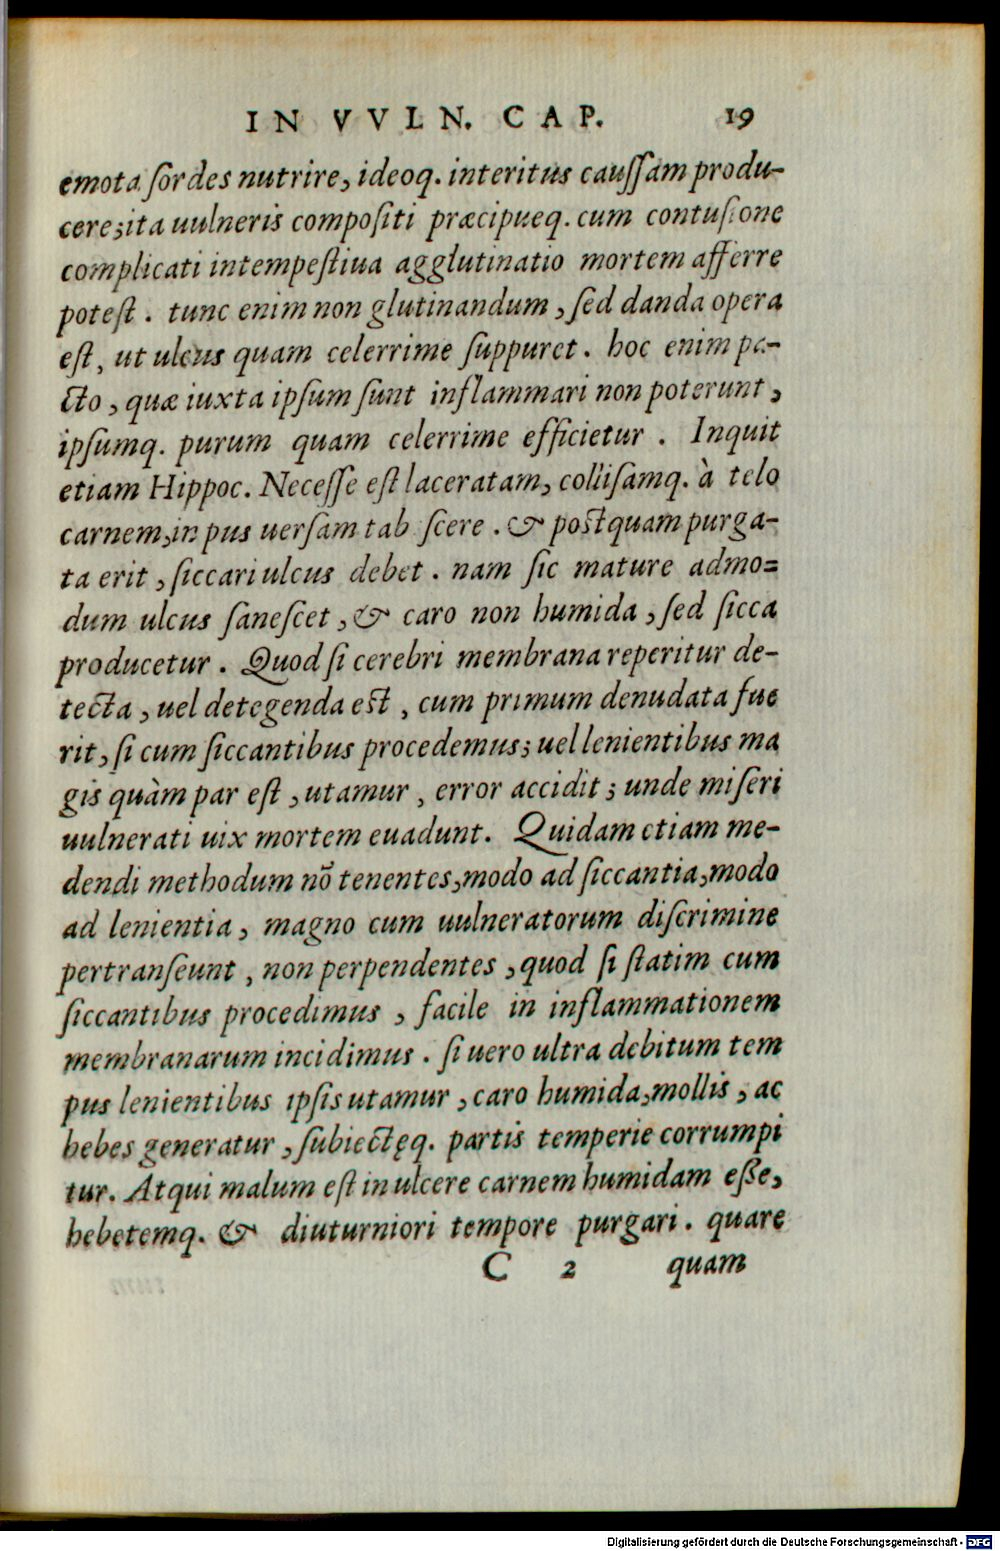 IN VVLN. CAP. 19
emota ſordes nutrire, ideoq. interitus cauſſam produ-
cere; ita uulneris compoſiti præcipueq. cum contuſione
complicati intempeſtiua agglutinatio mortem afferre
poteſt. tunc enim non glutinandum, ſed danda opera
eſt, ut ulcus quam celerrime ſuppuret. hoc enim pa-
cto, quæ iuxta ipſum ſunt inflammari non poterunt,
ipſumq. purum quam celerrime efficietur. Inquit
etiam Hippoc. Neceſſe eſt laceratam, colliſamq. à telo
carnem, in pus uerſam tab ſcere. & poſtquam purga-
ta erit, ſiccari ulcus debet. nam ſic mature admo=
dum ulcus ſaneſcet, & caro non humida, ſed ſicca
producetur. Quod ſi cerebri membrana reperitur de-
tecta, uel detegenda eſt, cum primum denudata fue
rit, ſi cum ſiccantibus procedemus; uel lenientibus ma
gis quàm par eſt, utamur, error accidit; unde miſeri
uulnerati uix mortem euadunt. Quidam etiam me-
dendi methodum nõ tenentes, modo ad ſiccantia, modo
ad lenientia, magno cum uulneratorum diſcrimine
pertranſeunt, non perpendentes, quod ſi ſtatim cum
ſiccantibus procedimus, facile in inflammationem
membranarum incidimus. ſi uero ultra debitum tem
pus lenientibus ipſis utamur, caro humida, mollis, ac
hebes generatur, ſubiectęq. partis temperie corrumpi
tur. Atqui malum eſt in ulcere carnem humidam eße,
hebetemq. & diuturniori tempore purgari. quare
C 2 quam
Digitalisierung gefördert durch die Deutsche Forschungsgemeinschaft - DFG